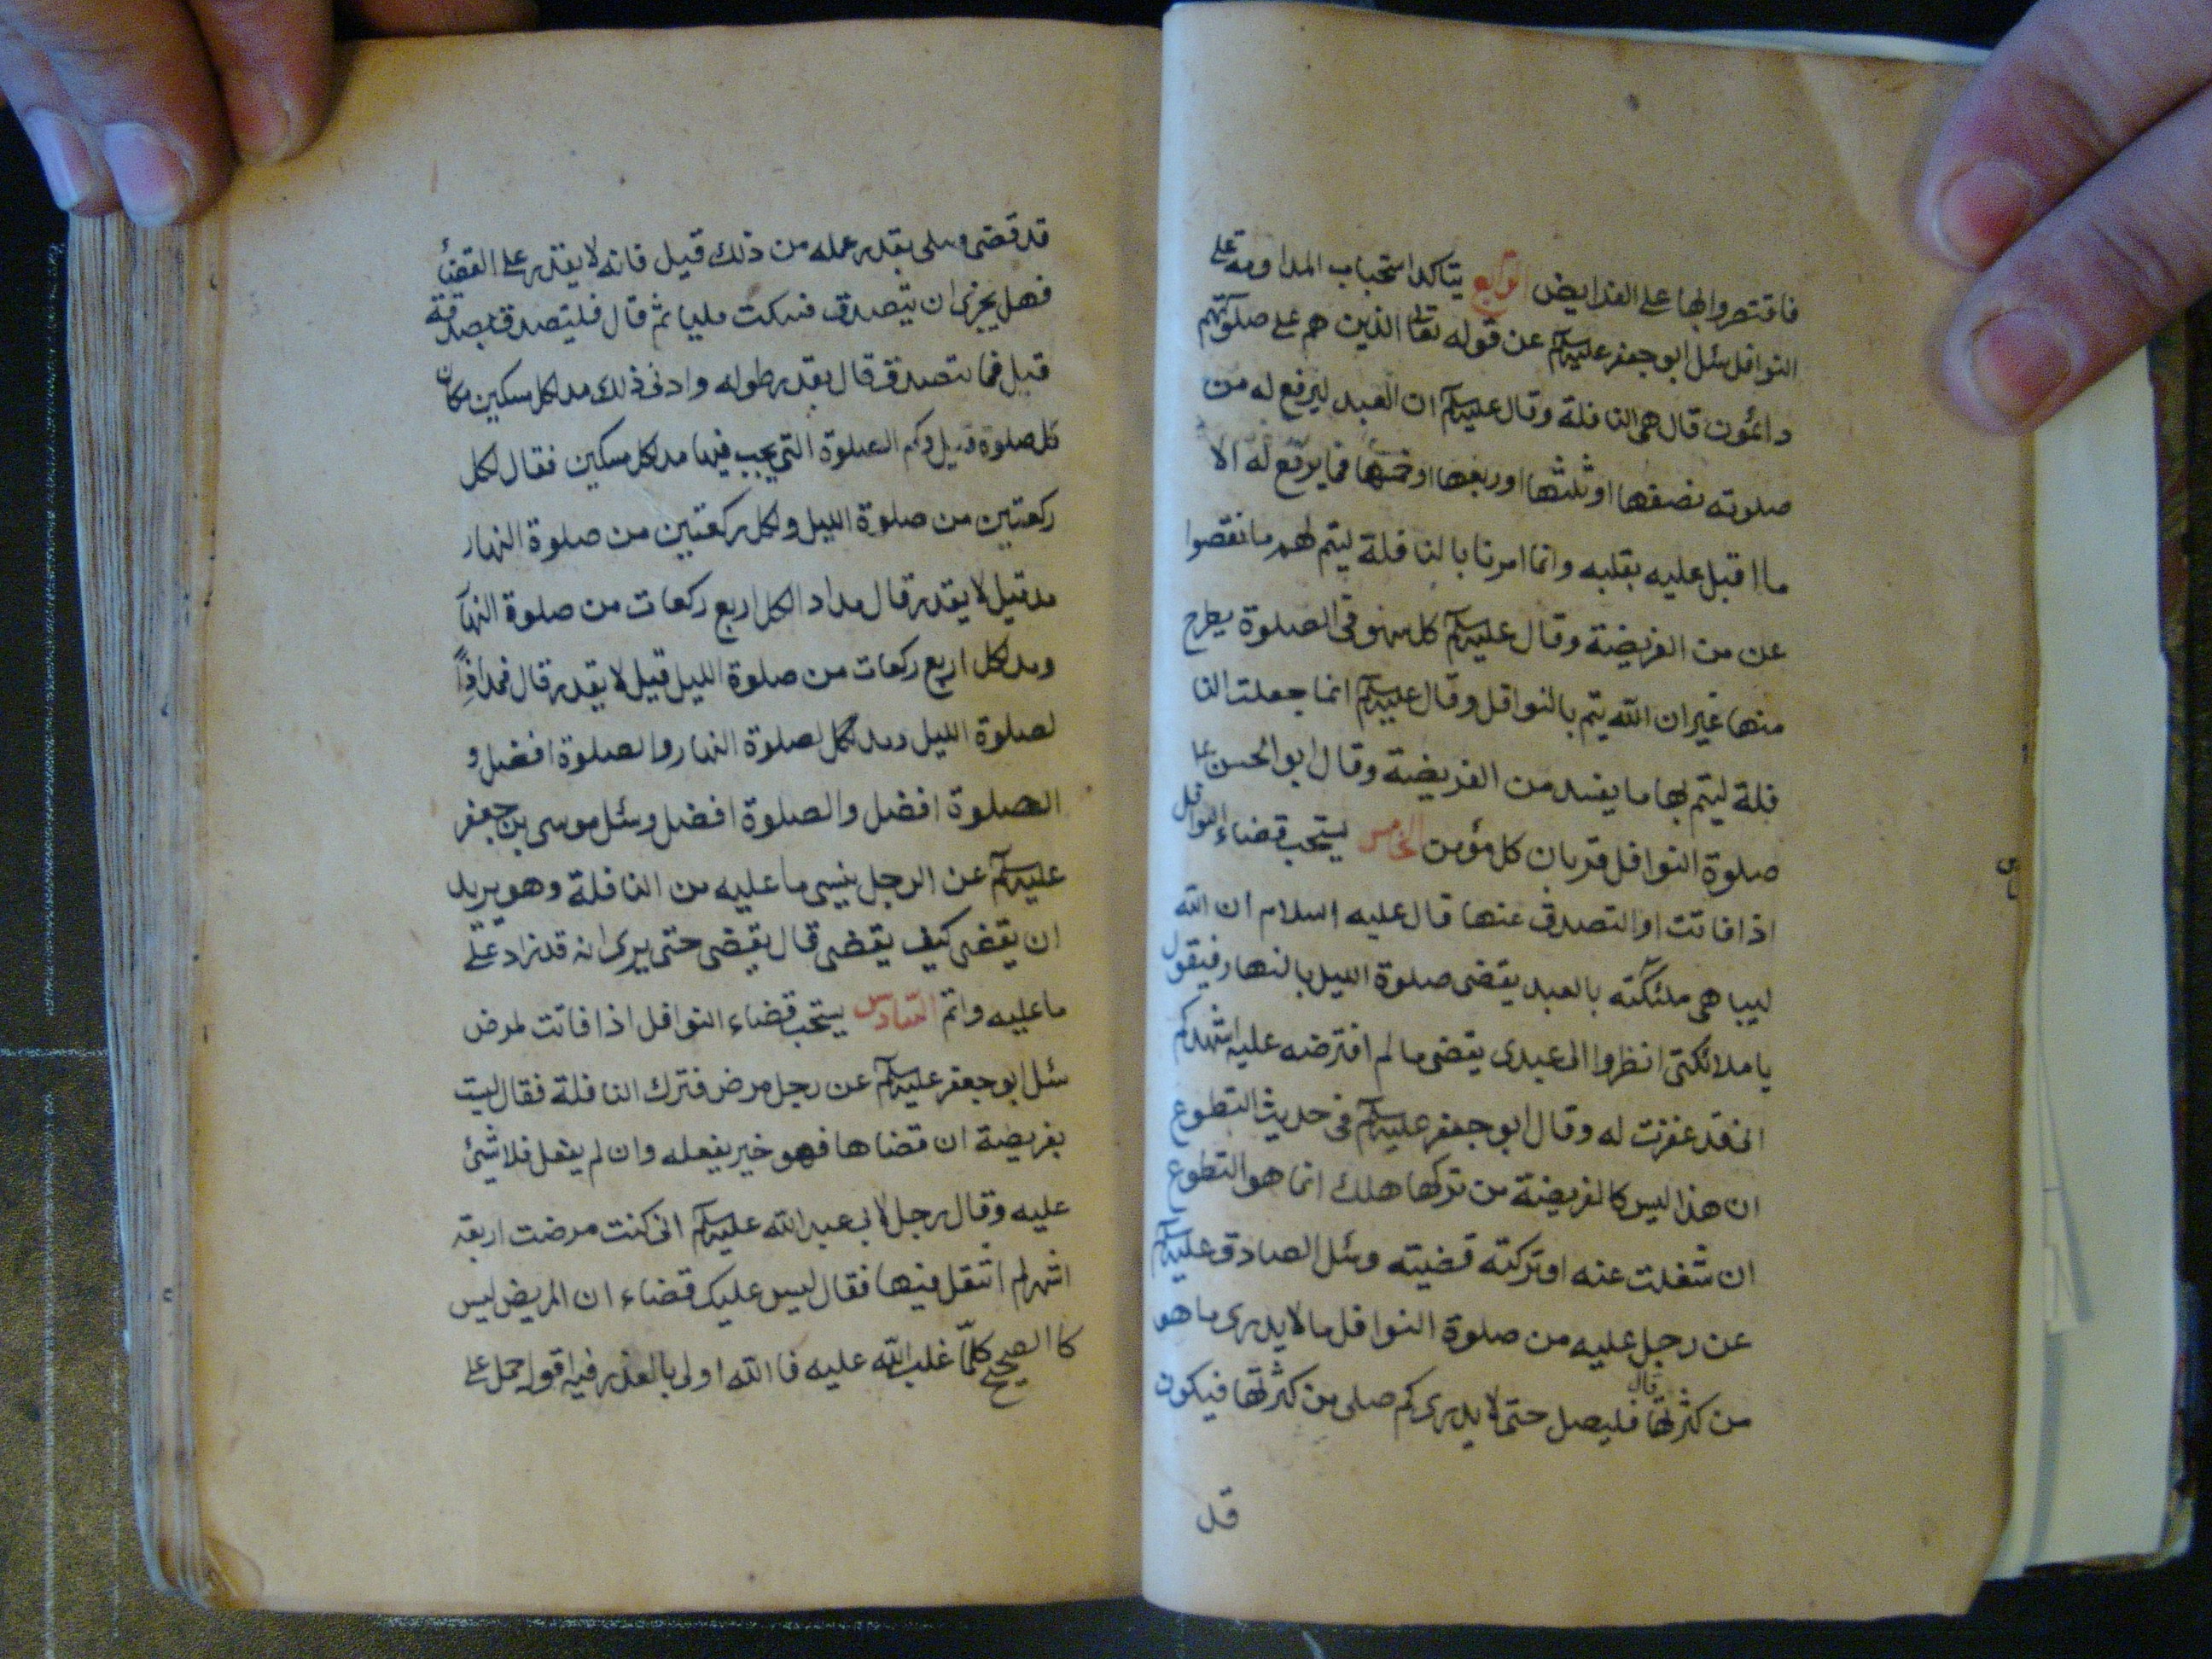 فاقتصروا بها على الفرايض الرابع يتاكد استحباب المداومة على
النوافل سئل ابو جعفر عليه السلام عن قوله تعالى الذين هم على صلوتهم
دائمون قال هى النافلة وقال عليه السلام ان العبد ليرفع له من
صلوته نصفها او ثلثها او ربعها او خمسها فما يرفع له الا
ما اقبل عليه بقلبه وانما امرنا بالنافلة ليتم لهم ما نقصوا
عن من الفريضة وقال عليه السلام كل سهو فى الصلوة يطرح
منها غير ان الله يتم بالنوافل وقال عليه السلام انما جعلت النا
فلة ليتم بها ما يفسد من الفريضة وقال ابو الحسن ع
صلوة النوافل قربان كل مؤمن الخامس يستحب قضاء النوافل
اذا فاتت او التصدق عنها قال عليه السلام ان الله
ليباهى ملئكته بالعبد يقضى صلوة الليل بالنهار فيقول
يا ملائكتى انظروا الى عبدى يقضى ما لم افترضه عليه اشهدكم
انى قد غفرت له وقال ابو جعفر عليه السلام فى حديث التطوع
ان هذا ليس كالفريضة من تركها هلك انما هو التطوع
ان شغلت عنه او تركته قضيته وسئل الصادق عليه السلام
عن رجل عليه من صلوة النوافل ما لا يدرى ما هو
من كثرتها قال فليصل حتى لا يدرى كم صلى من كثرتها فيكون
قد
قد قضى وصلى بقدر عمله من ذلك قيل فانه لا يقدر على القضأ
فهل يجزى ان يتصدق فسكت مليا ثم قال فليتصدق بصدقة
قيل فما يتصدق قال بقدر طوله وادنى ذلك مد لكل مسكين مكان
كل صلوة قيل وكم الصلوة التى يجب فيها مد لكل مسكين فقال لكل
ركعتين من صلوة الليل ولكل ركعتين من صلوة النهار
مد قيل لا يقدر قال مد اذ لكل اربع ركعات من صلوة النهار
ومد لكل اربع ركعات من صلوة الليل قيل لا يقدر قال فمد اذاً
لصلوة الليل ومد لصلوة النهار والصلوة افضل و
الصلوة افضل والصلوة افضل وسئل موسى بن جعفر
عليه السلام عن الرجل ينسى ما عليه من النافلة وهو يريد
ان يقضى كيف يقضى قال يقضى حتى يرى انه قد زاد على
ما عليه واتم السادس يستحب قضاء النوافل اذا فاتت لمرض
سئل ابو جعفر عليه السلام عن رجل مرض فترك النافلة فقال ليست
بفريضة ان قضاها فهو خير يفعله وان لم يفعل فلا شئ
عليه وقال رجل لابى عبد الله عليه السلام انى كنت مرضت اربعة
اشهر لم اتنفل فيها فقال ليس عليك قضاء ان المريض ليس
كالصحيح كلما غلب الله عليه فالله اولى بالعذر فيه اقول حمل على